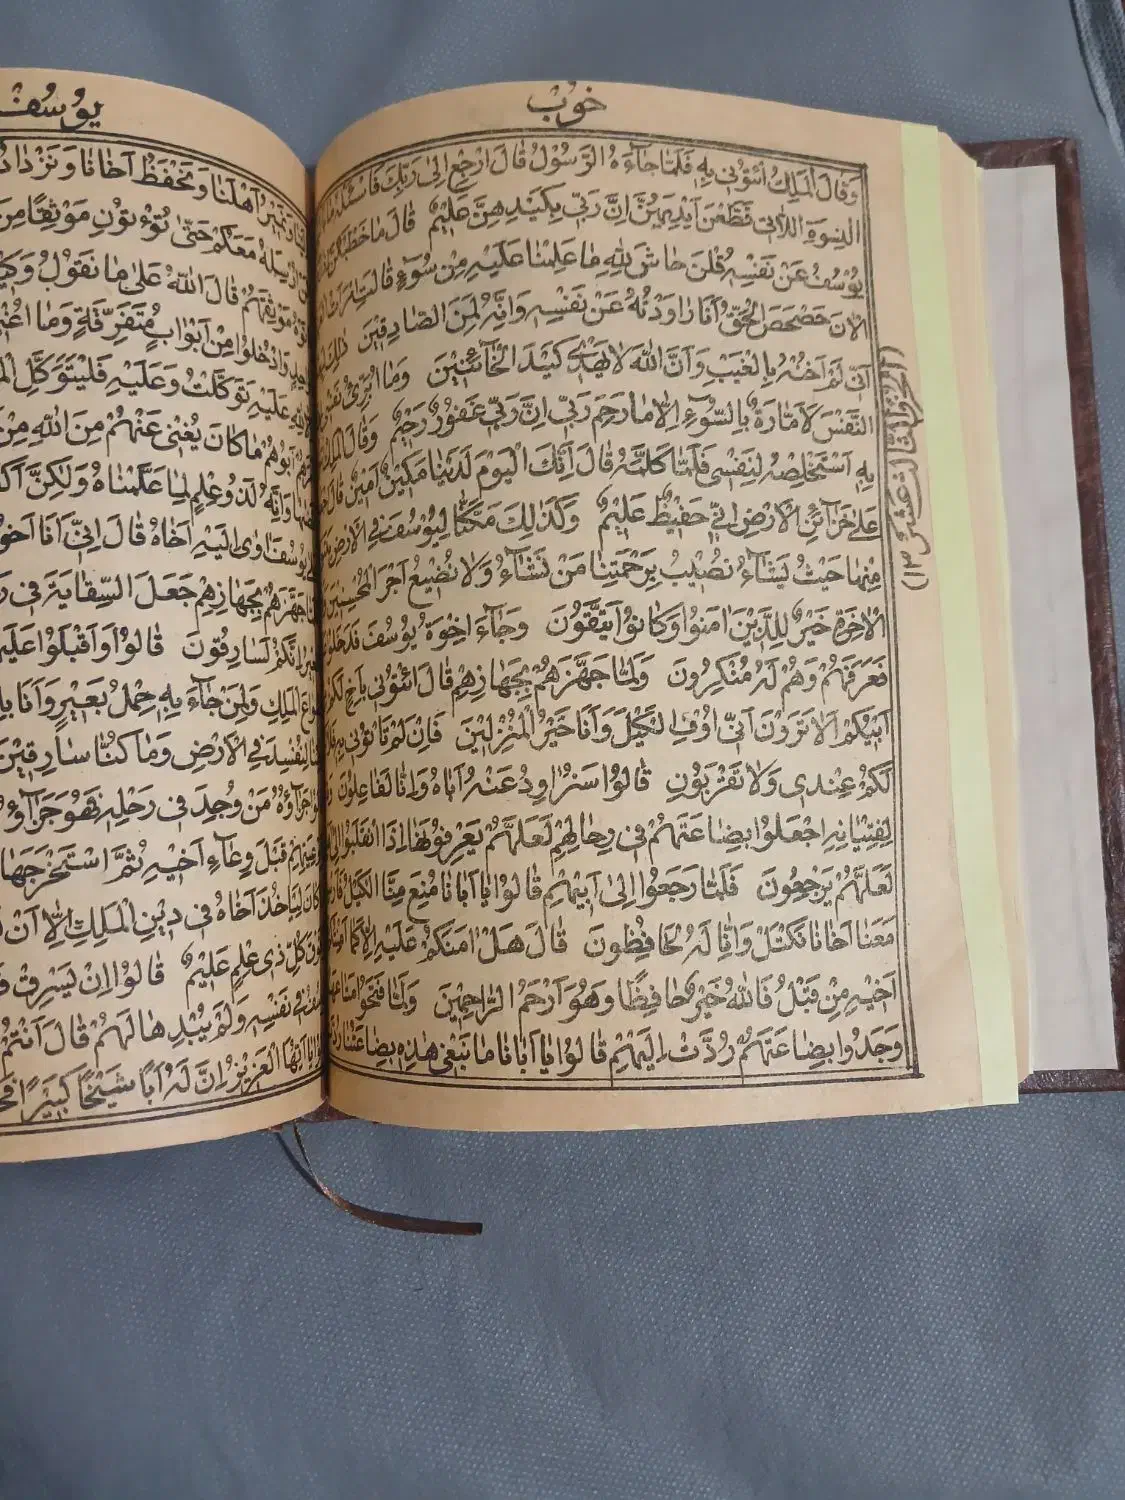 خوب
وَقَالَ الْمَلِكُ ائْتُونِي بِهِ فَلَمَّا جَآءَهُ الرَّسُوْلُ قَالَ ارْجِعْ اِلٰى رَبِّكَ فَاسْئَلْهُ مَا
النِّسْوَةِ اللَّاتِي قَطَّعْنَ اَيْدِيَهُنَّ اِنَّ رَبِّي بِكَيْدِهِنَّ عَلِيْمٌ قَالَ مَا خَطْبُكُنَّ
يُوْسُفَ عَنْ نَفْسِهِ قُلْنَ حَاشَ لِلّٰهِ مَا عَلِمْنَا عَلَيْهِ مِنْ سُوْٓءٍ قَالَتِ
الْاٰنَ حَصْحَصَ الْحَقُّ اَنَا رَاوَدْتُهُ عَنْ نَفْسِهِ وَاِنَّهُ لَمِنَ الصَّادِقِيْنَ ذٰلِكَ
اَنِّي لَمْ اَخُنْهُ بِالْغَيْبِ وَاَنَّ اللّٰهَ لَا يَهْدِي كَيْدَ الْخَآئِنِيْنَ وَمَا اُبَرِّئُ
النَّفْسَ لَاَمَّارَةٌ بِالسُّوْٓءِ اِلَّا مَا رَحِمَ رَبِّي اِنَّ رَبِّي غَفُوْرٌ رَحِيْمٌ وَقَالَ
بِهِ اَسْتَخْلِصْهُ لِنَفْسِي فَلَمَّا كَلَّمَهُ قَالَ اِنَّكَ الْيَوْمَ لَدَيْنَا مَكِيْنٌ اَمِيْنٌ قَالَ
عَلٰى خَزَآئِنِ الْاَرْضِ اِنِّي حَفِيْظٌ عَلِيْمٌ وَكَذٰلِكَ مَكَّنَّا لِيُوْسُفَ فِي الْاَرْضِ
مِنْهَا حَيْثُ يَشَآءُ نُصِيْبُ بِرَحْمَتِنَا مَنْ نَشَآءُ وَلَا نُضِيْعُ اَجْرَ الْمُحْسِنِيْنَ
الْاٰخِرَةِ خَيْرٌ لِلَّذِيْنَ اٰمَنُوْا وَكَانُوْا يَتَّقُوْنَ وَجَآءَ اِخْوَةُ يُوْسُفَ فَدَخَلُوْا
فَعَرَفَهُمْ وَهُمْ لَهُ مُنْكِرُوْنَ وَلَمَّا جَهَّزَهُمْ بِجَهَازِهِمْ قَالَ ائْتُوْنِي بِاَخٍ لَكُمْ
اَبِيْكُمْ اَلَا تَرَوْنَ اَنِّي اُوْفِي الْكَيْلَ وَاَنَا خَيْرُ الْمُنْزِلِيْنَ فَاِنْ لَمْ تَأْتُوْنِي بِهِ فَلَا
لَكُمْ عِنْدِي وَلَا تَقْرَبُوْنِ قَالُوْا سَنُرَاوِدُ عَنْهُ اَبَاهُ وَاِنَّا لَفَاعِلُوْنَ
لِفِتْيَانِهِ اجْعَلُوْا بِضَاعَتَهُمْ فِي رِحَالِهِمْ لَعَلَّهُمْ يَعْرِفُوْنَهَا اِذَا انْقَلَبُوْا اِلٰى
لَعَلَّهُمْ يَرْجِعُوْنَ فَلَمَّا رَجَعُوْا اِلٰى اَبِيْهِمْ قَالُوْا يَا اَبَانَا مُنِعَ مِنَّا الْكَيْلُ
مَعَنَا اَخَانَا نَكْتَلْ وَاِنَّا لَهُ لَحَافِظُوْنَ قَالَ هَلْ اٰمَنُكُمْ عَلَيْهِ اِلَّا كَمَا
اَخِيْهِ مِنْ قَبْلُ فَاللّٰهُ خَيْرٌ حَافِظًا وَهُوَ اَرْحَمُ الرَّاحِمِيْنَ وَلَمَّا فَتَحُوْا
وَجَدُوْا بِضَاعَتَهُمْ رُدَّتْ اِلَيْهِمْ قَالُوْا يَا اَبَانَا مَا نَبْغِي هٰذِهِ بِضَاعَتُنَا
(الجزو الثالث عشر ١٣)
يُوسُف
وَنَمِيْرُ اَهْلَنَا وَنَحْفَظُ اَخَانَا وَنَزْدَادُ
اُرْسِلَهُ مَعَكُمْ حَتّٰى تُؤْتُوْنِ مَوْثِقًا مِنَ
مَوْثِقَهُمْ قَالَ اللّٰهُ عَلٰى مَا نَقُوْلُ
وَادْخُلُوْا مِنْ اَبْوَابٍ مُتَفَرِّقَةٍ وَمَا
عَلَيْهِ تَوَكَّلْتُ وَعَلَيْهِ فَلْيَتَوَكَّلِ
اَبُوْهُمْ مَا كَانَ يُغْنِي عَنْهُمْ مِنَ اللّٰهِ مِنْ
وَاِنَّهُ لَذُوْ عِلْمٍ لِمَا عَلَّمْنَاهُ وَلٰكِنَّ
يُوْسُفَ اٰوٰى اِلَيْهِ اَخَاهُ قَالَ اِنِّي اَنَا
جَهَّزَهُمْ بِجَهَازِهِمْ جَعَلَ السِّقَايَةَ فِي
اِنَّكُمْ لَسَارِقُوْنَ قَالُوْا وَاَقْبَلُوْا
الْمَلِكِ وَلِمَنْ جَآءَ بِهِ حِمْلُ بَعِيْرٍ وَاَنَا
لِنُفْسِدَ فِي الْاَرْضِ وَمَا كُنَّا سَارِقِيْنَ
جَزَآؤُهُ مَنْ وُجِدَ فِي رَحْلِهِ فَهُوَ جَزَآؤُهُ
قَبْلَ وِعَآءِ اَخِيْهِ ثُمَّ اسْتَخْرَجَهَا
كَانَ لِيَأْخُذَ اَخَاهُ فِي دِيْنِ الْمَلِكِ اِلَّا اَنْ
كُلِّ ذِي عِلْمٍ عَلِيْمٌ قَالُوْا اِنْ يَسْرِقْ
فِي نَفْسِهِ وَلَمْ يُبْدِهَا لَهُمْ قَالَ اَنْتُمْ
يَا اَيُّهَا الْعَزِيْزُ اِنَّ لَهُ اَبًا شَيْخًا كَبِيْرًا